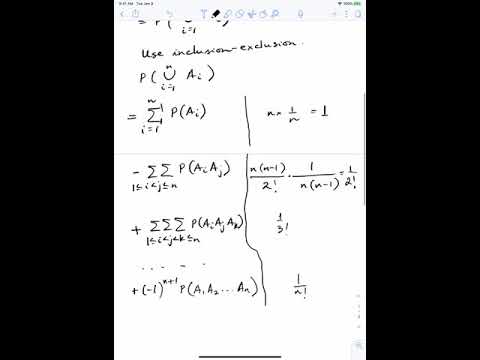 9:41 AM Tue Jan 2
= P( ∪ᵢ₌₁ )
Use inclusion-exclusion.
P( ∪ᵢ₌₁ⁿ Aᵢ )
= Σᵢ₌₁ⁿ P(Aᵢ) | n × 1/n = 1
- ΣΣ 1≤i<j≤n P(AᵢAⱼ) | n(n-1)/2! · 1/n(n-1) = 1/2!
+ ΣΣΣ 1≤i<j<k≤n P(AᵢAⱼAₖ) | 1/3!
... - ..
+ (-1)ⁿ⁺¹ P(A₁A₂...Aₙ) | 1/n!